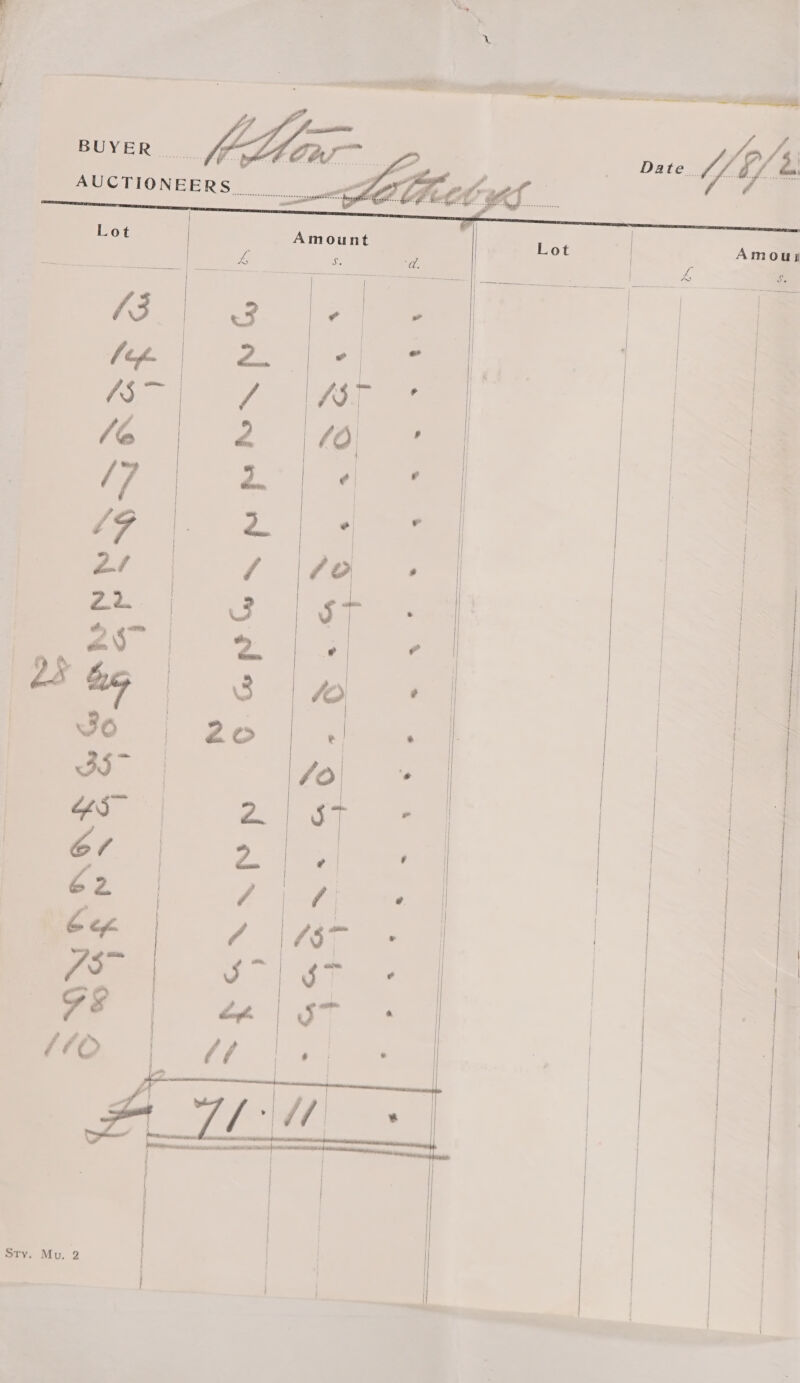 BUYER
AUCTIONEERS Sothebys
Date 1/8/2
Lot Amount Lot Amoun
£ s. d. £ s.
13 3 " "
14 2 " "
15 1 15 "
16 2 10 "
17 2 " "
19 2 " "
21 1 10 "
22 3 5 "
25 2 " "
28 3 10 "
30 20 " "
35 10 "
45 2 5 "
61 2 " "
62 1 1 "
64 1 15 "
75 5 5 "
98 4 5 "
110 11 " "
£ 71 · 11 "
Sty. Mu. 2